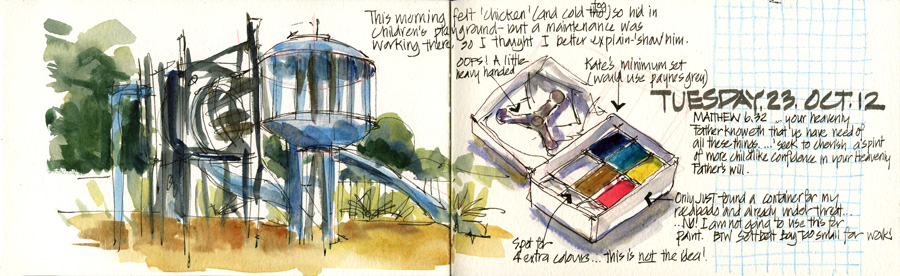 This morning felt 'chicken' (and cold too) so hid in
children's playground - but a maintenance was
working there so I thought I better explain - 'show' him.
OOPS! A little
heavy handed
Kate's minimum set
(would use paynes grey)
TUESDAY.23.OCT.12
MATTHEW 6.32 ... your heavenly
Father knoweth that ye have need of
all these things. ... I seek to cherish a spirit
of more childlike confidence in your Heavenly
Father's will.
Only JUST found a container for my
and already under threat...
... No! I am not going to use this for
paint. BTW bag too small for walks
Spot for
4 extra colours... this is not the idea!